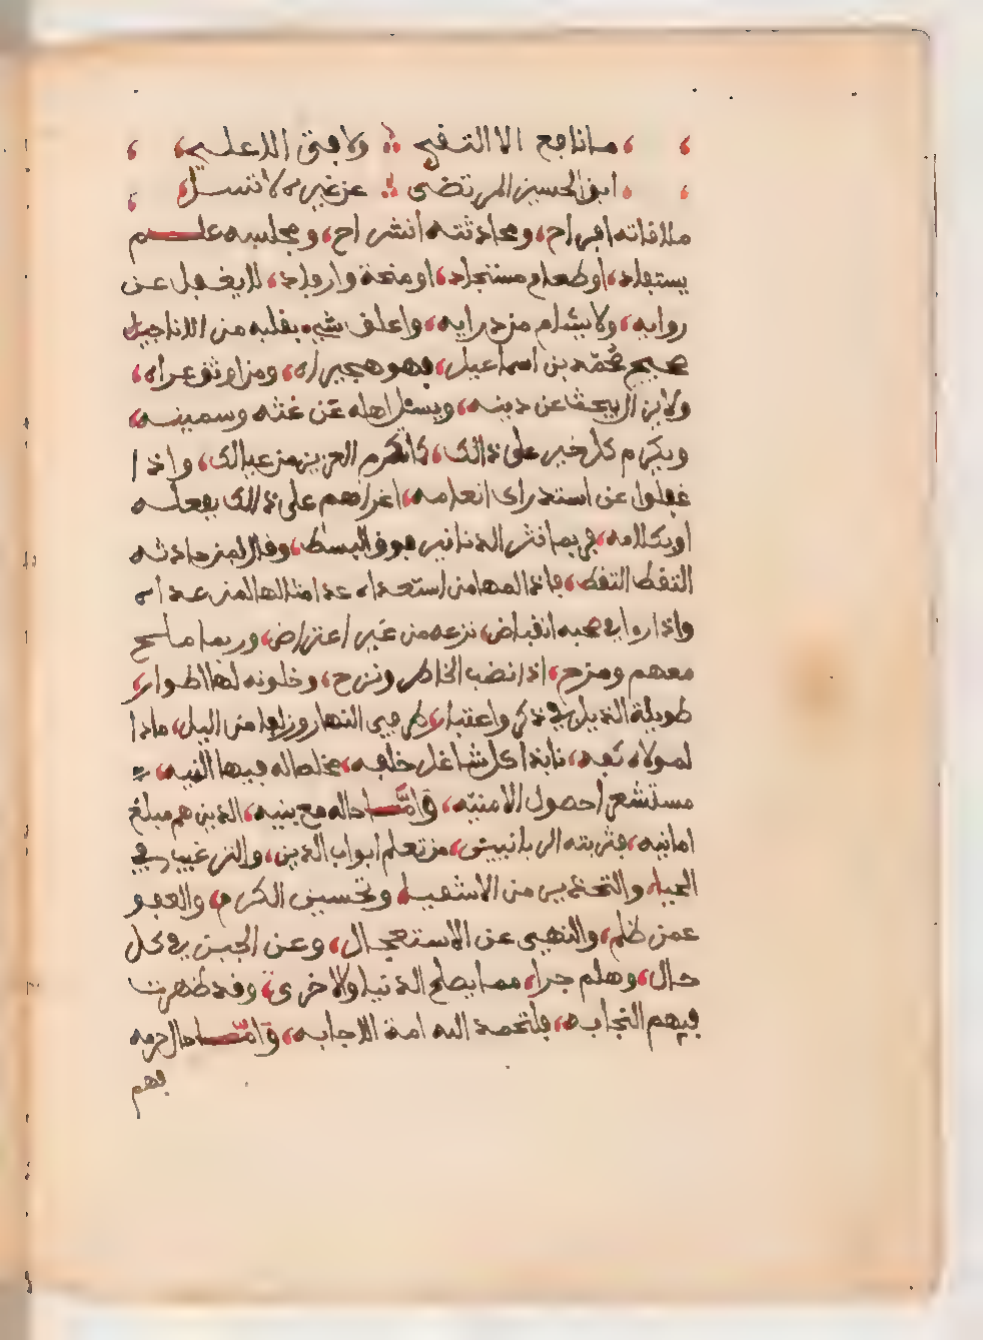 ما نافع الا التقي ولا فتى الا علي
ابو الحسين المرتضى عن غيره لا تسل
ملاقاته افراح، ومحادثته انشراح، ومجلسه علم
يستفاد، او طعام مستجاد، او منحة وارفاد، لا يغفل عن
رواية، ولا يسئم من دراية، واعلق شيء بقلبه من الاناجيل
صحيح محمد بن اسماعيل، فهو هجيراه، ومن اوثق عراه،
ولا يزال يبحث عن دينه، ويسئل اهله عن غثه وسمينه،
ويكرم كل خبير على ذالك، كانكرم العزيز من عيالك، واذا
غفلوا عن استدراك انعامه، اغراهم على ذالك بفعله
او بكلامه، فربما نثر الدنانير فوق البسط، وقال لمن حادثه
التقط التقط، فاذا لمها من استعداه عد امثالها لمن عداه
واذا رءا في صحبه انقباض، نزعه من غير اعتراض، وربما ملح
معهم ومزح، اذا نضب الخاطر ونزح، وخلوته لها اطوار،
طويلة الذيل في ذكر واعتبار، طرفي النهار وزلفا من اليل، مادا
لمولاه يده، نابذا كل شاغل خلفه، مخلصا له فيها النية،
مستشعرا حصول الامنية، وأما حاله مع بنيه، الذين هم مبلغ
امانيه، فتربيته الربانيين، من تعلم ابواب الدين، والترغيب في
الحياء والتحذير من الاشقياء وتحسين الكرم، والعفو
عمن ظلم، والنهي عن الاستعجال، وعن الجبن في كل
حال، وهلم جرا، مما يصلح الدنيا والاخرى، وقد ظهرت
فيهم النجابة، فلتحمد الله امة الاجابة، وأما حال حرمه
فهم